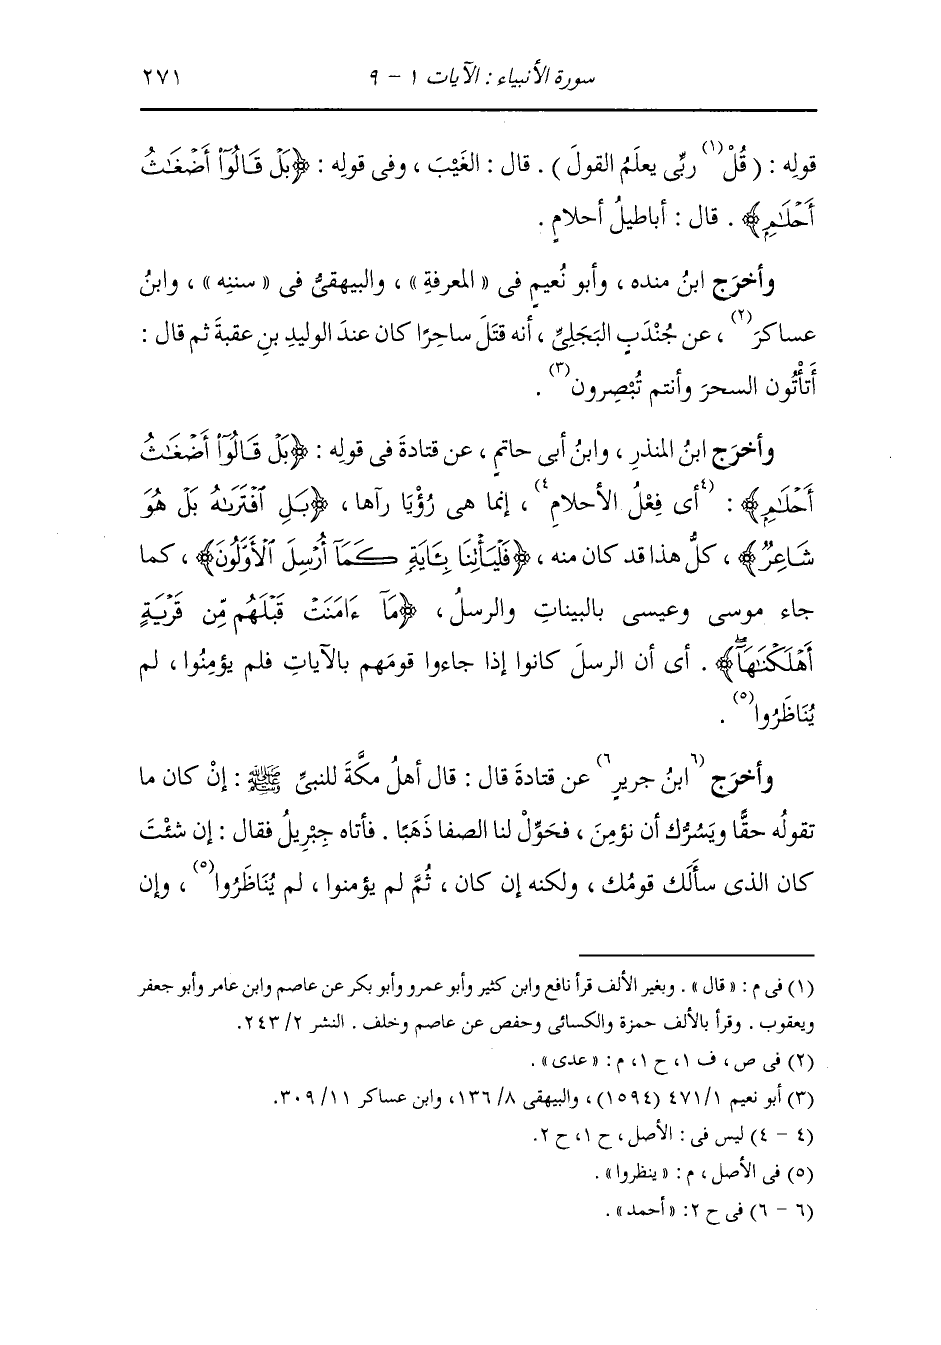 سورة الأنبياء : الآيات ١ – ٩ ٢٧١
قولِه : ( قُلْ(١) ربِّى يعلَمُ القولَ ) . قال : الغَيْبَ ، وفى قولِه : ﴿بَلْ قَالُوٓا۟ أَضْغَـٰثُ
أَحْلَـٰمٍ﴾ . قال : أباطيلُ أحلامٍ .
وأخرَج ابنُ منده ، وأبو نُعيمٍ فى « المعرفةِ » ، والبيهقىُّ فى « سننِه » ، وابنُ
عساكرَ(٢) ، عن جُنْدَبٍ البَجَلِىِّ ، أنه قتَلَ ساحِرًا كان عندَ الوليدِ بنِ عقبةَ ثم قال :
أَتَأْتُون السحرَ وأنتم تُبْصِرون(٣) .
وأخرَج ابنُ المنذرِ ، وابنُ أبى حاتمٍ ، عن قتادةَ فى قولِه : ﴿بَلْ قَالُوٓا۟ أَضْغَـٰثُ
أَحْلَـٰمٍ﴾ : (٤أى فِعْلُ الأحلامِ٤) ، إنما هى رُؤْيَا رآها ، ﴿بَلِ ٱفْتَرَىٰهُ بَلْ هُوَ
شَاعِرٌ﴾ ، كلُّ هذا قد كان منه ، ﴿فَلْيَأْتِنَا بِـَٔايَةٍ كَمَآ أُرْسِلَ ٱلْأَوَّلُونَ﴾ ، كما
جاء موسى وعيسى بالبيناتِ والرسلُ ، ﴿مَآ ءَامَنَتْ قَبْلَهُم مِّن قَرْيَةٍ
أَهْلَكْنَـٰهَآ ۖ﴾ . أى أن الرسلَ كانوا إذا جاءوا قومَهم بالآياتِ فلم يؤمِنُوا ، لم
يُنَاظَرُوا(٥) .
وأخرَج (٦ابنُ جريرٍ٦) عن قتادةَ قال : قال أهلُ مكَّةَ للنبىِّ ﷺ : إنْ كان ما
تقولُه حقًّا ويَسُرُّك أن نؤمِنَ ، فحَوِّلْ لنا الصفا ذَهَبًا . فأتاه جِبْرِيلُ فقال : إن شئْتَ
كان الذى سأَلَك قومُك ، ولكنه إن كان ، ثُمَّ لم يؤمنوا ، لم يُنَاظَرُوا(٥) ، وإن
(١) فى م : « قال » . وبغير الألف قرأ نافع وابن كثير وأبو عمرو وأبو بكر عن عاصم وابن عامر وأبو جعفر
ويعقوب . وقرأ بالألف حمزة والكسائى وحفص عن عاصم وخلف . النشر ٢/ ٢٤٣.
(٢) فى ص ، ف ١، ح ١، م : « عدى » .
(٣) أبو نعيم ٤٧١/١ (١٥٩٤) ، والبيهقى ٨/ ١٣٦، وابن عساكر ١١/ ٣٠٩.
(٤ – ٤) ليس فى : الأصل ، ح ١، ح ٢.
(٥) فى الأصل ، م : « ينظروا » .
(٦ – ٦) فى ح ٢: « أحمد » .